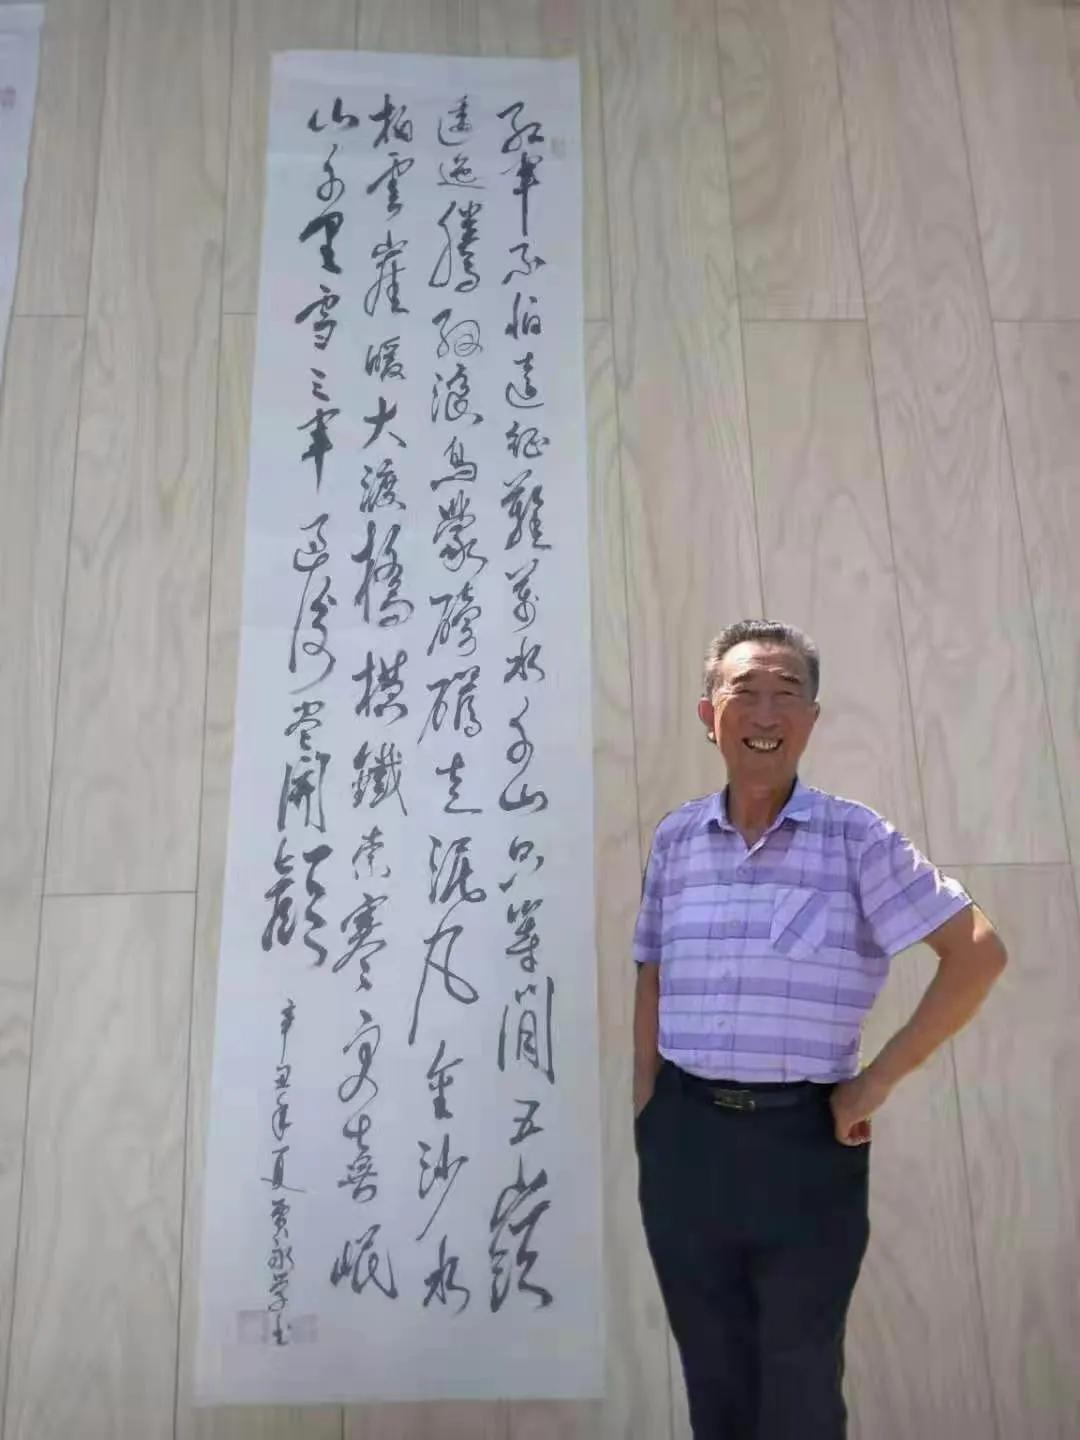 紅軍不怕遠征難萬水千山只等閒五嶺
逶迤騰細浪烏蒙磅礴走泥丸金沙水
拍雲崖暖大渡橋橫鐵索寒更喜岷
山千里雪三軍過後尽開顏
辛丑年夏賈永学书